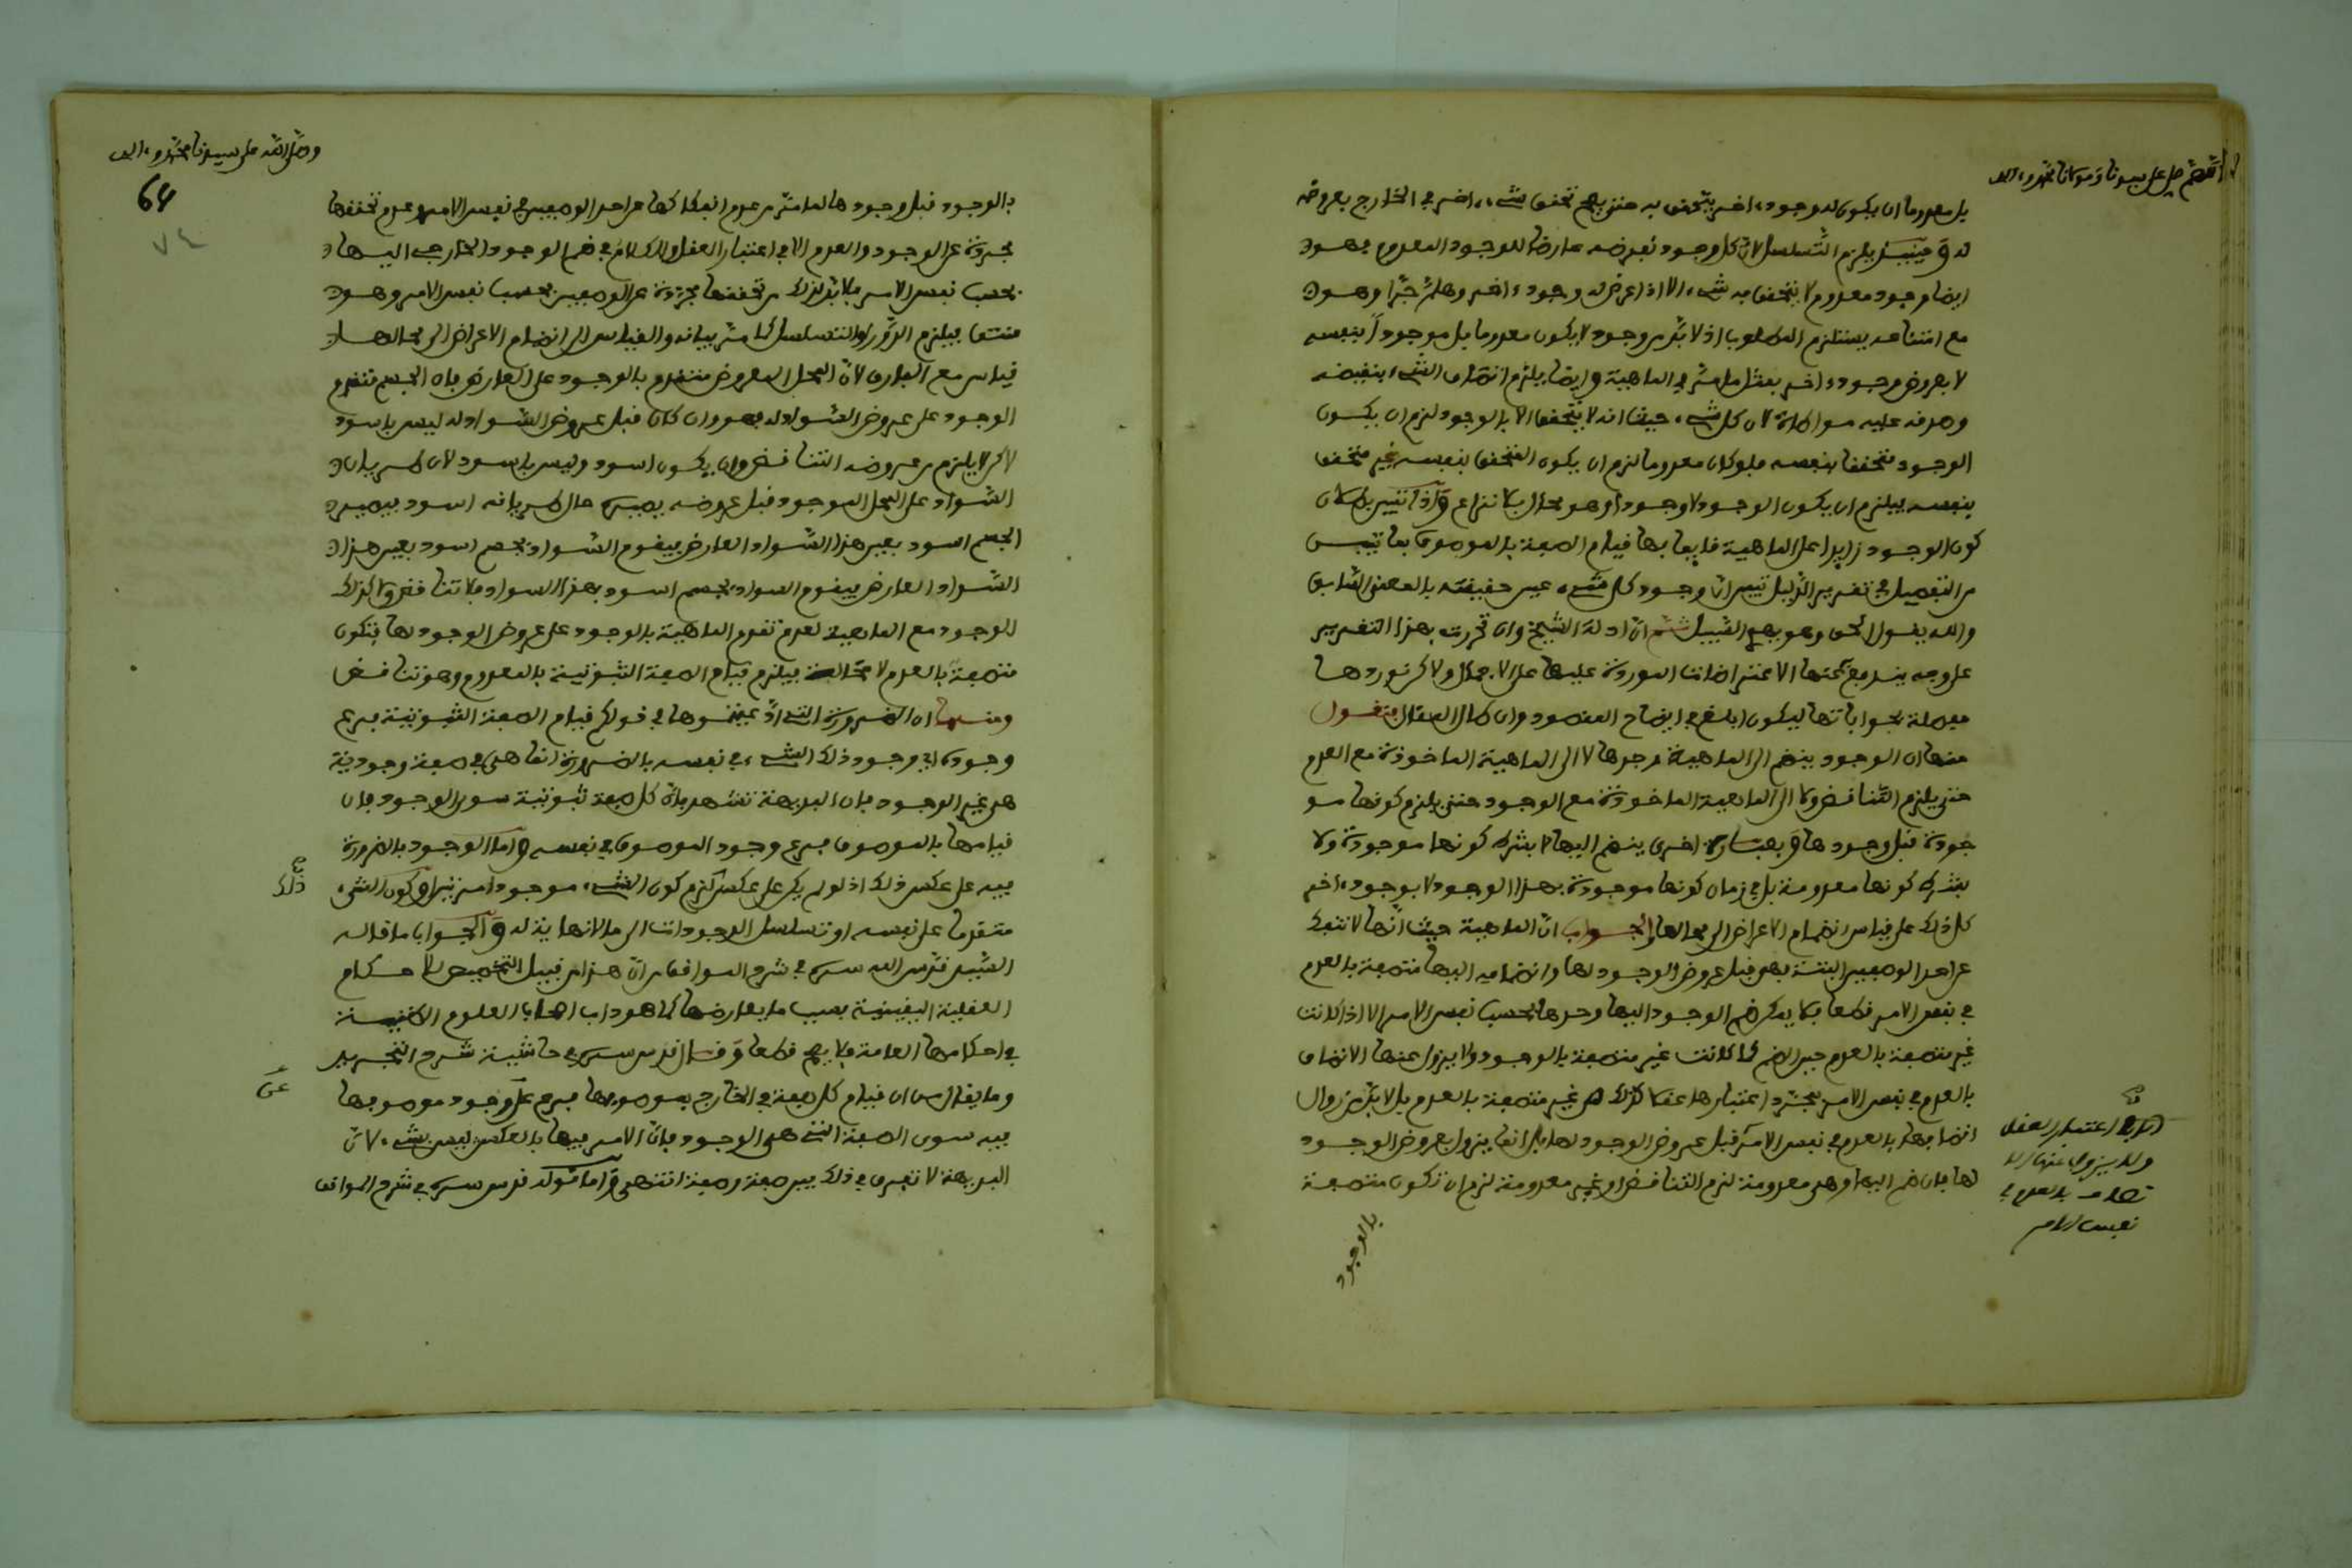 اللهم صل على سيدنا ومولانا محمد وآله
بل معدوما ان يكون له وجود اخر يتحقق به حتى يصح تحقق شيء اخر في الخارج بعروضه
له وحينئذ يلزم التسلسل لان كل وجود نفرضه عارضا للوجود المعدوم فهو
ايضا وجود معدوم لا يتحقق به شيء الا اذا عرض له وجود اخر وهلم جرا وهو
مع امتناعه يستلزم المطلوب اذ لا بد من وجود لا يكون معدوما بل موجودا بنفسه
لا بعروض وجود اخر بمثل ما مر في الماهية وايضا يلزم اتصاف الشيء بنقيضه
وصدقه عليه مواطاة لان كل شيء حيث انه لا يتحقق الا بالوجود لزم ان يكون
الوجود متحققا بنفسه فلو كان معدوما لزم ان يكون المتحقق بنفسه غير متحقق
بنفسه فيلزم ان يكون الوجود لا وجودا وهو محال بلا نزاع واذا تبين بطلان
كون الوجود زايدا على الماهية قايما بها قيام الصفة بالموصوف بما تبين
من التفصيل في تقرير الدليل تبين ان وجود كل شيء عين حقيقته بالمعنى السابق
والله يقول الحق وهو يهدي السبيل ثم ان ادلة الشيخ وان تحررت بهذا التقرير
على وجه يندفع عنها الاعتراضات الموردة عليها على الاجمال ولاكن نوردها
مفصلة بجواباتها ليكون ابلغ في ايضاح المقصود وان طال المقال فنقول
منها ان الوجود ينضم الى الماهية وحدها لا الى الماهية الماخوذة مع العدم
حتى يلزم التناقض ولا الى الماهية الماخوذة مع الوجود حتى يلزم كونها مو
جودة قبل وجودها وبعبارة اخرى ينضم اليها لا بشرط كونها موجودة ولا
بشرط كونها معدومة بل في زمان كونها موجودة بهذا الوجود لا بوجود اخر
كل ذلك على قياس انضمام الاعراض الى محالها والجواب ان الماهية حيث انها لا تنفك
عن احد الوصفين البتة فهي قبل عروض الوجود لها وانضمامه اليها متصفة بالعدم
في نفس الامر قطعا فلا يمكن ضم الوجود اليها وحدها بحسب نفس الامر الا اذا كانت
غير متصفة بالعدم حين الضم كما كانت غير متصفة بالوجود ولا يزول عنها الاتصاف
بالعدم في نفس الامر بمجرد اعتبارها عقلا كذلك غير متصفة بالعدم بل لا بد من زوال
اتصافها بالعدم في نفس الامر قبل عروض الوجود لها بل انما يزول بعروض الوجود
لها فان ضم اليها وهي معدومة لزم التناقض او غير معدومة لزم ان تكون متصفة
بالوجود
اي في اعتبار العقل
ولا يزول عنها الا
تصاف بالعدم في
نفس الامر
وصلى الله على سيدنا محمد وآله
64
٧٤
بالوجود قبل وجودها لما مر من عدم انفكاكها عن احد الوصفين في نفس الامر وعدم تحققها
مجردة عن الوجود والعدم الا في اعتبار العقل والكلام في ضم الوجود الخارجي اليها
بحسب نفس الامر فلا بد لذلك من تحققها مجردة عن الوصفين بحسب نفس الامر وهو
منتف فيلزم الدور او التسلسل كما مر بيانه والقياس الى انضمام الاعراض الى محالها
قياس مع الفارق لان المحل المعروض متقدم بالوجود على العارض فان الجسم متقدم
الوجود على عروض السواد له فهو وان كان قبل عروض السواد له ليس باسود
لاكن لا يلزم من عروضه التناقض وان يكون اسود وليس باسود لان طريان
السواد على المحل الموجود قبل عروضه يصيره حال طريانه اسود فيصير
الجسم اسود بعين هذا السواد العارض فيقوم السواد بجسم اسود بعين هذا
السواد العارض فيقوم السواد بجسم اسود بهذا السواد فلا تناقض ولا كذلك
الوجود مع الماهية لعدم تقدم الماهية بالوجود على عروض الوجود لها فتكون
متصفة بالعدم لا محالة فيلزم قيام الصفة الثبوتية بالمعدوم وهو تناقض
ومنها ان الضرورة التي ادعيتموها في قولكم قيام الصفة الثبوتية فرع
وجوده اي وجود ذلك الشيء في نفسه بالضرورة انما هي في صفة وجودية
هي غير الوجود فان البديهة تشهد بان كل صفة ثبوتية سوى الوجود فان
قيامها بالموصوف فرع وجود الموصوف في نفسه واما الوجود بالضرورة
فيه على عكس ذلك اذ لو لم يكن على عكس لزم كون الشيء موجودا مرتين او كون الشيء
ذلك
متقدما على نفسه او تسلسل الوجودات الى ما لا نهاية له والجواب ما قاله
السيد قدس الله سره في شرح المواقف ان هذا من قبيل التخصيص للاحكام
العقلية اليقينية بسبب ما يعارضها كما هو داب اصحاب العلوم الظنية
في احكامها العامة فلا يصح قطعا وقال قدس سره في حاشية شرح التجريد
وما يقال من ان قيام كل صفة في الخارج بموصوفها فرع على وجود موصوفها
عن
فيه سوى الصفة التي هي الوجود فان الامر فيها بالعكس ليس بشيء لان
البديهة لا تفرق في ذلك بين صفة وصفة انتهى واما قوله قدس سره في شرح المواقف